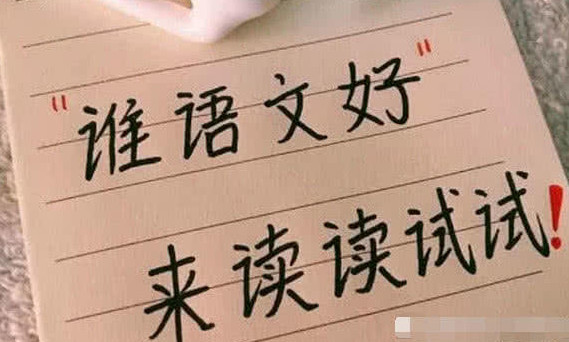 "谁语文好"
来读读试试!